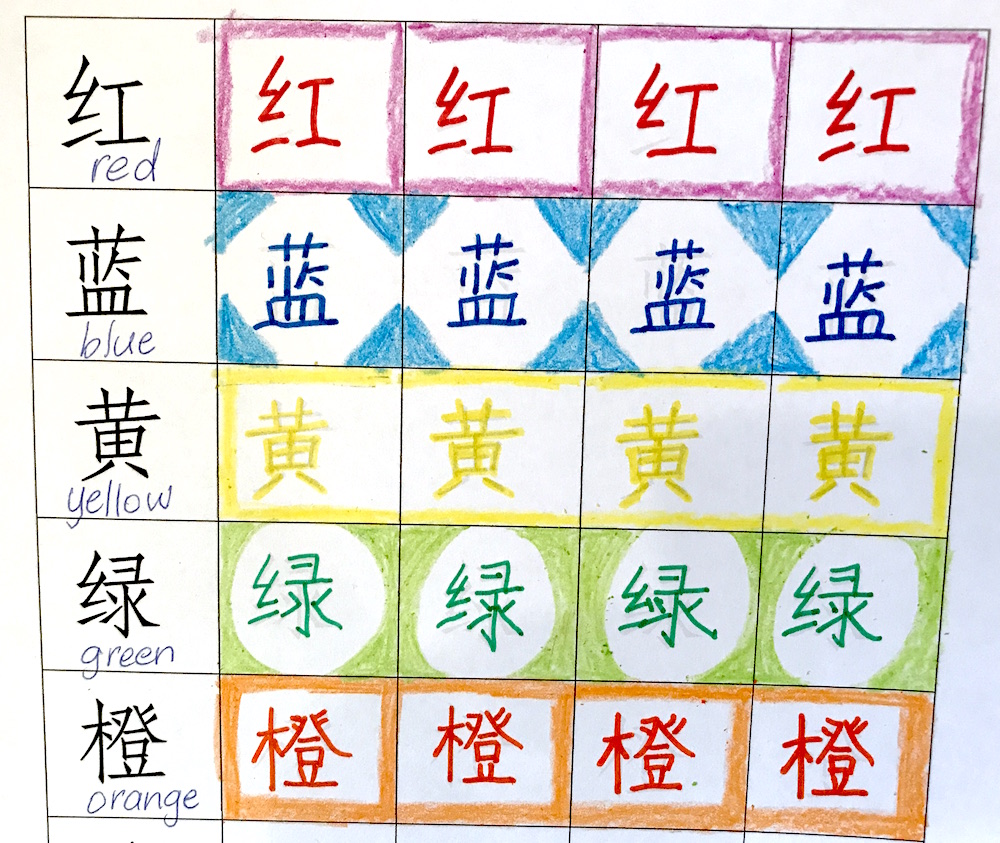 红 红 红 红 红
red
蓝 蓝 蓝 蓝 蓝
blue
黄 黄 黄 黄 黄
yellow
绿 绿 绿 绿 绿
green
橙 橙 橙 橙 橙
orange